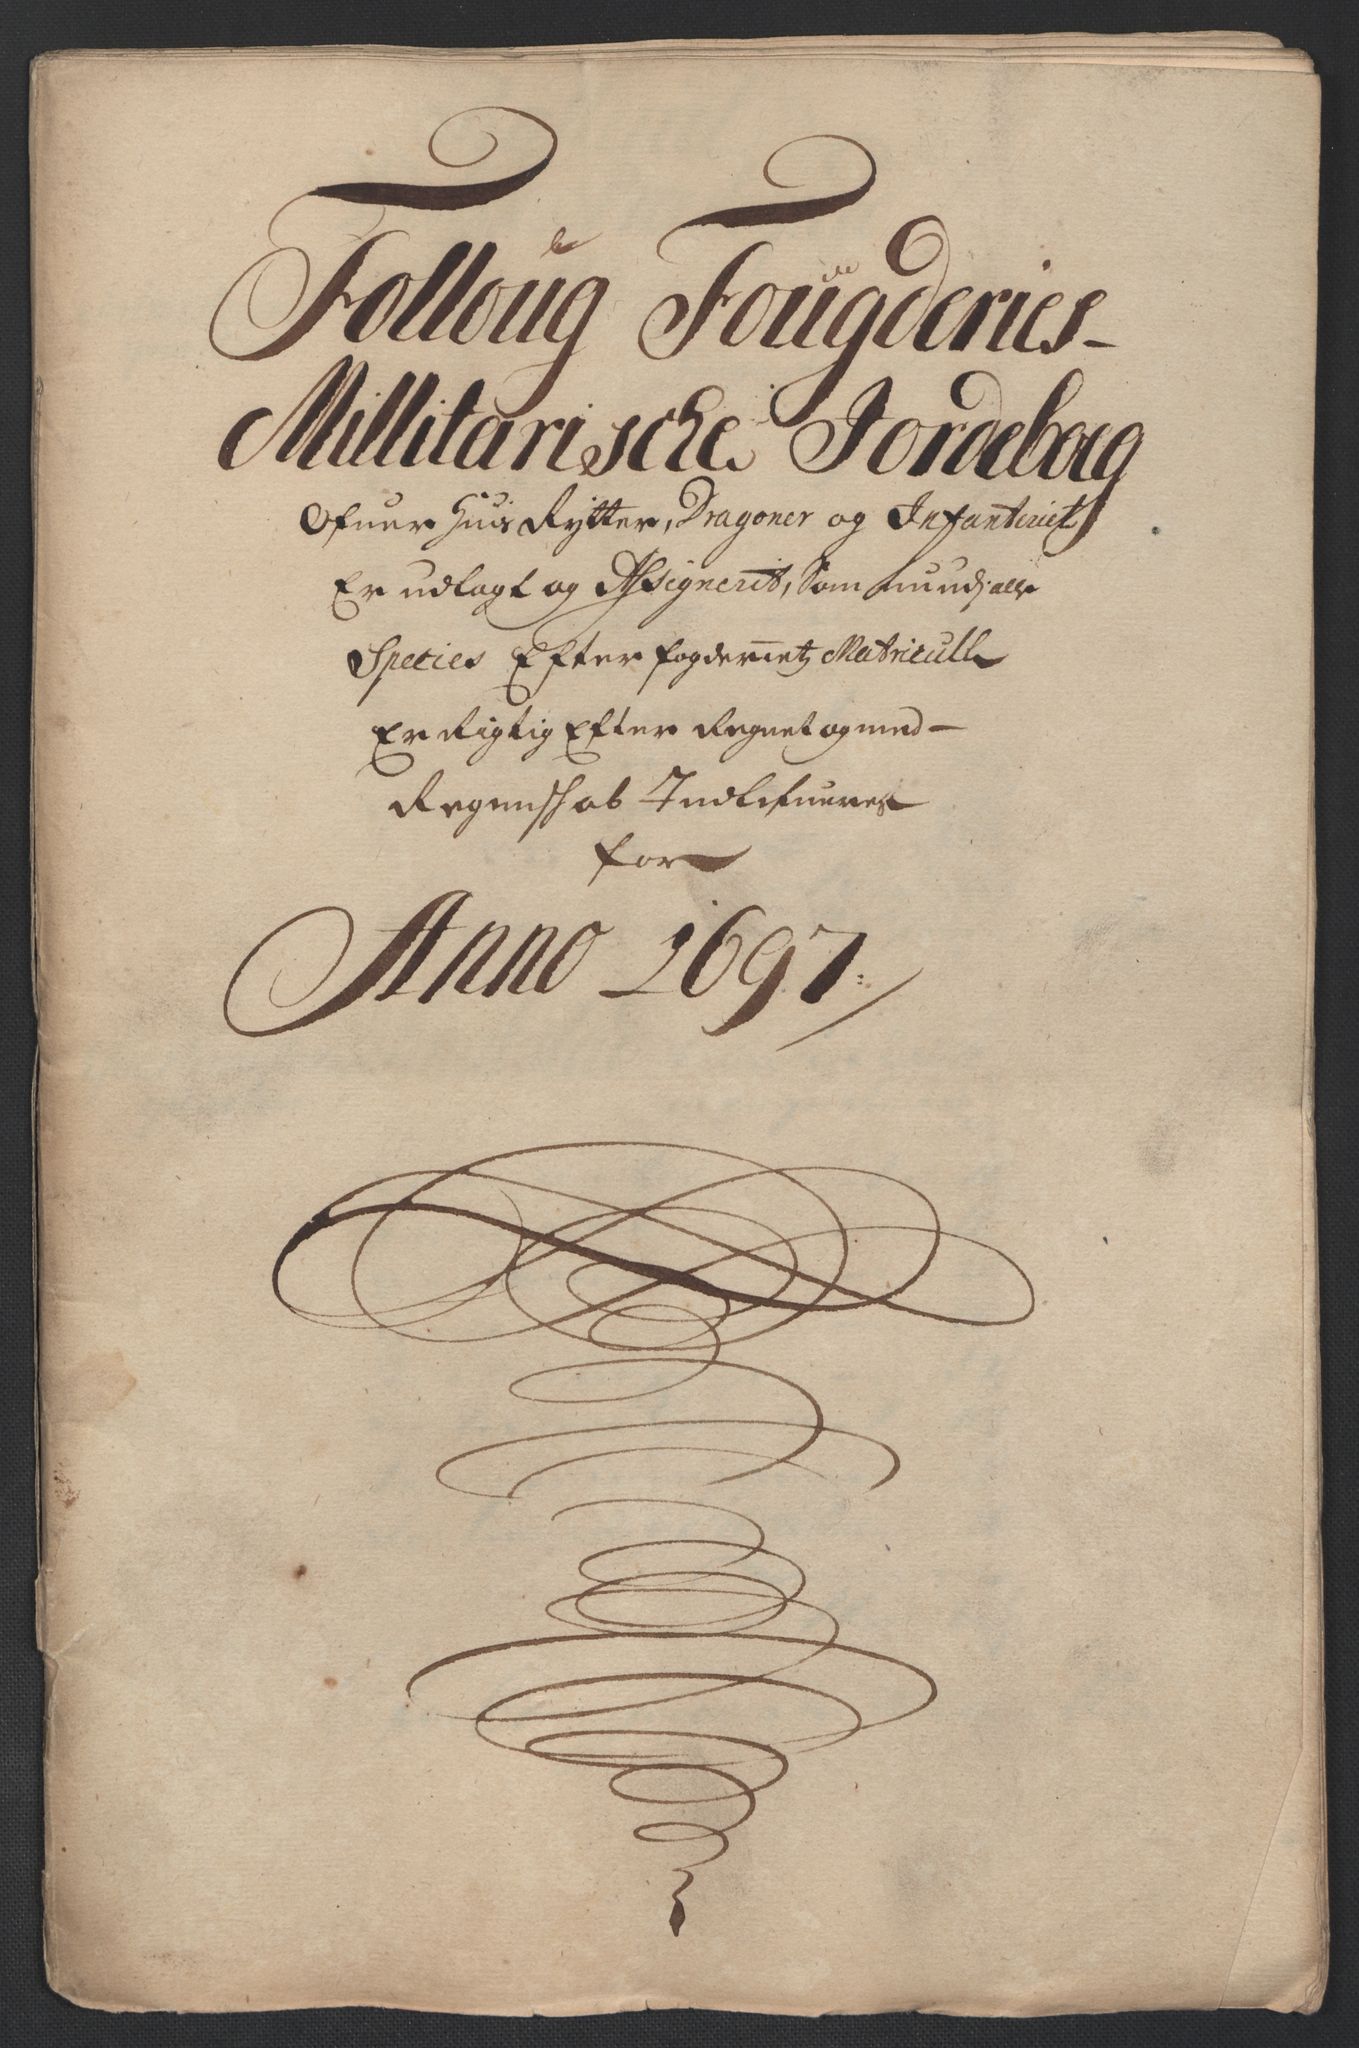 Folloug Fougderies-
Millitarische Jordeboeg
Ofuer huis Rytter, Dragoner og Infanteriet
Er udlagt og Assignerit, Som
Species Efter fogderietz Matricull
Er Rigtig Efter Regnet og med-
Regenskab Indlefueres
for
Anno 1697.